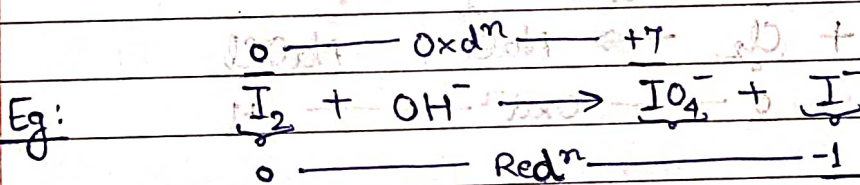 0 —— Oxdⁿ —— +7
Eg: I₂ + OH⁻ ⟶ IO₄⁻ + I⁻
0 —— Redⁿ —— -1